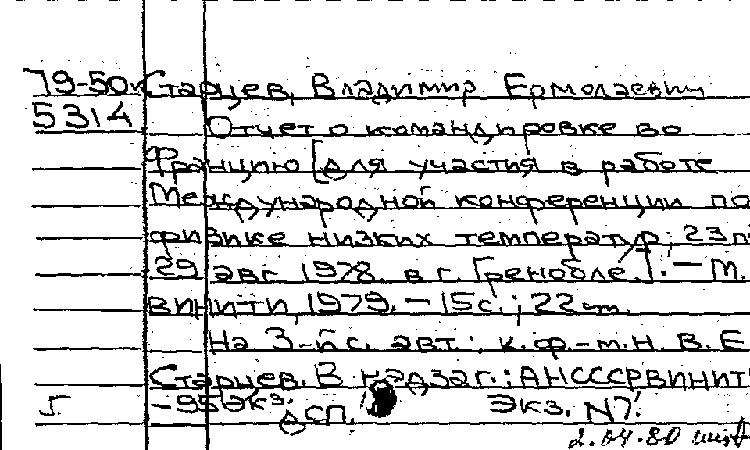 79-50к Старцев, Владимир Ермолаевич
5314 Отчет о командировке во
Францию [для участия в работе
Международной конференции по
физике низких температур; 23
29 авг. 1978. в г. Гренобле]. - М.
ВИНИТИ, 1979. - 15с.; 22 см.
На 3-й с. авт.: к.ф.-м.н В.Е
Старцев. В надзаг.: АНСССРВИНИТ
- 95 экз. ДСП. Экз. N7.
2.04.80